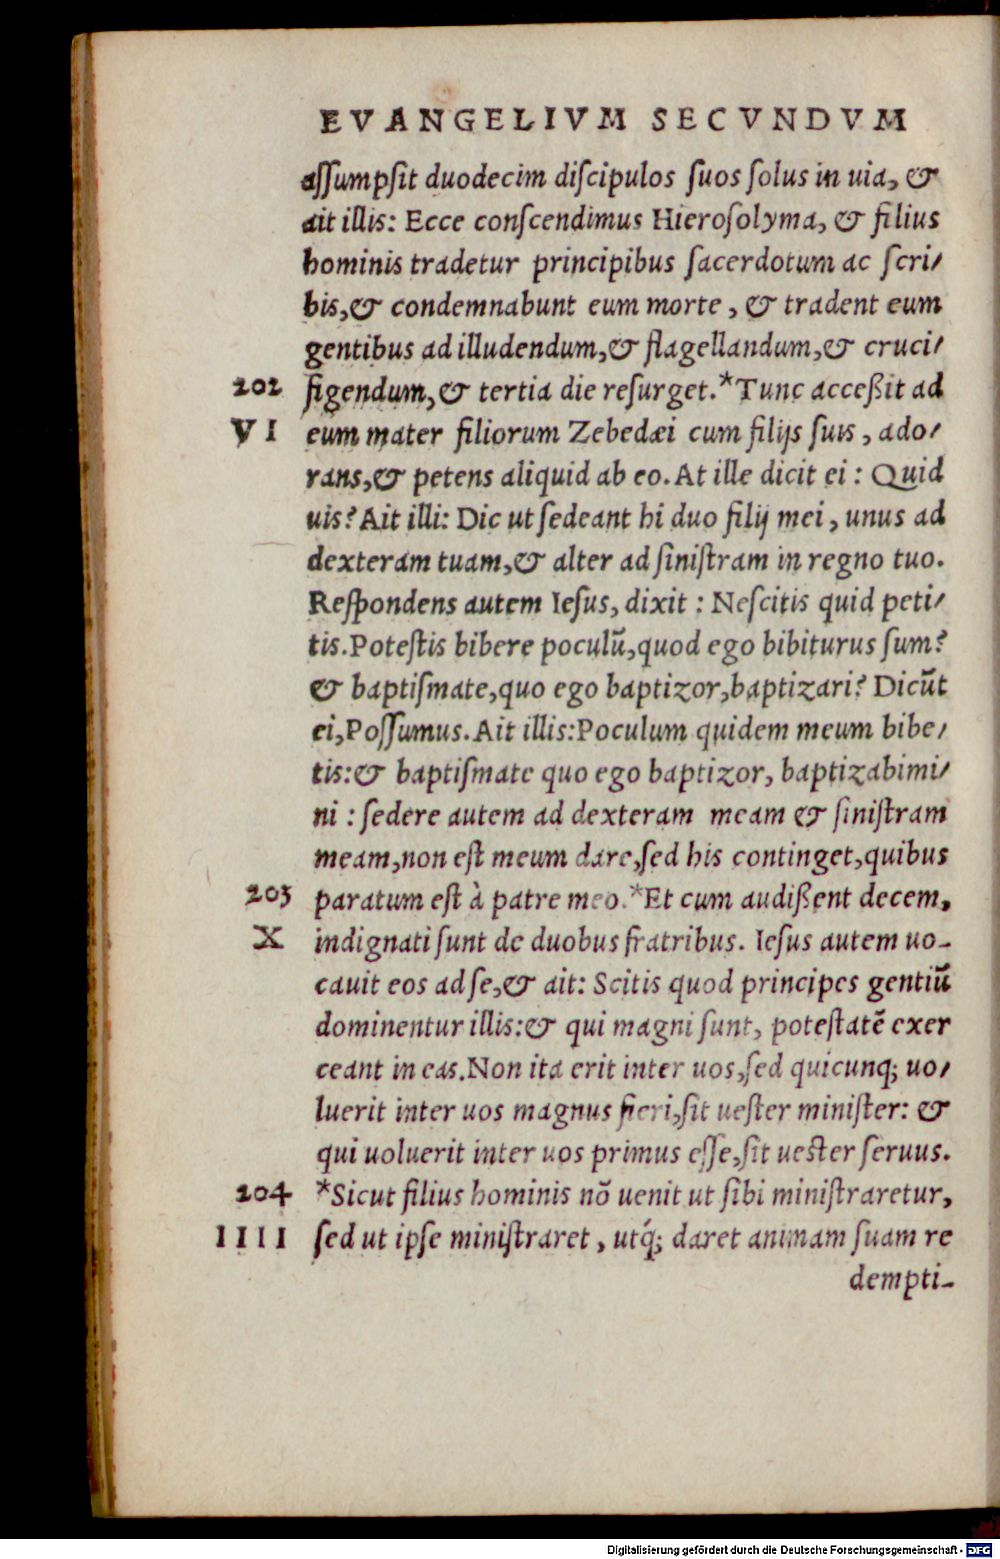 EVANGELIVM SECVNDVM
aſſumpſit duodecim diſcipulos ſuos ſolus in uia, &
ait illis: Ecce conſcendimus Hieroſolyma, & filius
hominis tradetur principibus ſacerdotum ac ſcri/
bis,& condemnabunt eum morte , & tradent eum
gentibus ad illudendum,& flagellandum,& cruci/
202 figendum,& tertia die reſurget.*Tunc acceßit ad
VI eum mater filiorum Zebedæi cum filijs ſuis , ado/
rans,& petens aliquid ab eo. At ille dicit ei : Quid
uis? Ait illi: Dic ut ſedeant hi duo filij mei , unus ad
dexteram tuam,& alter ad ſiniſtram in regno tuo.
Reſpondens autem Ieſus, dixit : Neſcitis quid peti/
tis.Poteſtis bibere poculū,quod ego bibiturus ſum?
& baptiſmate,quo ego baptizor,baptizari? Dicūt
ei,Poſſumus.Ait illis:Poculum quidem meum bibe/
tis:& baptiſmate quo ego baptizor, baptizabimi/
ni : ſedere autem ad dexteram meam & ſiniſtram
meam,non eſt meum dare,ſed his continget,quibus
203 paratum eſt à patre meo.*Et cum audißent decem,
X indignati ſunt de duobus fratribus. Ieſus autem uo-
cauit eos ad ſe,& ait: Scitis quod principes gentiū
dominentur illis:& qui magni ſunt, poteſtatē exer
ceant in eas.Non ita erit inter uos,ſed quicunq; uo/
luerit inter uos magnus fieri,ſit ueſter miniſter: &
qui uoluerit inter uos primus eſſe,ſit uester ſeruus.
204 *Sicut filius hominis nō uenit ut ſibi miniſtraretur,
IIII ſed ut ipſe miniſtraret , utq́; daret animam ſuam re
dempti-
Digitalisierung gefördert durch die Deutsche Forschungsgemeinschaft - DFG